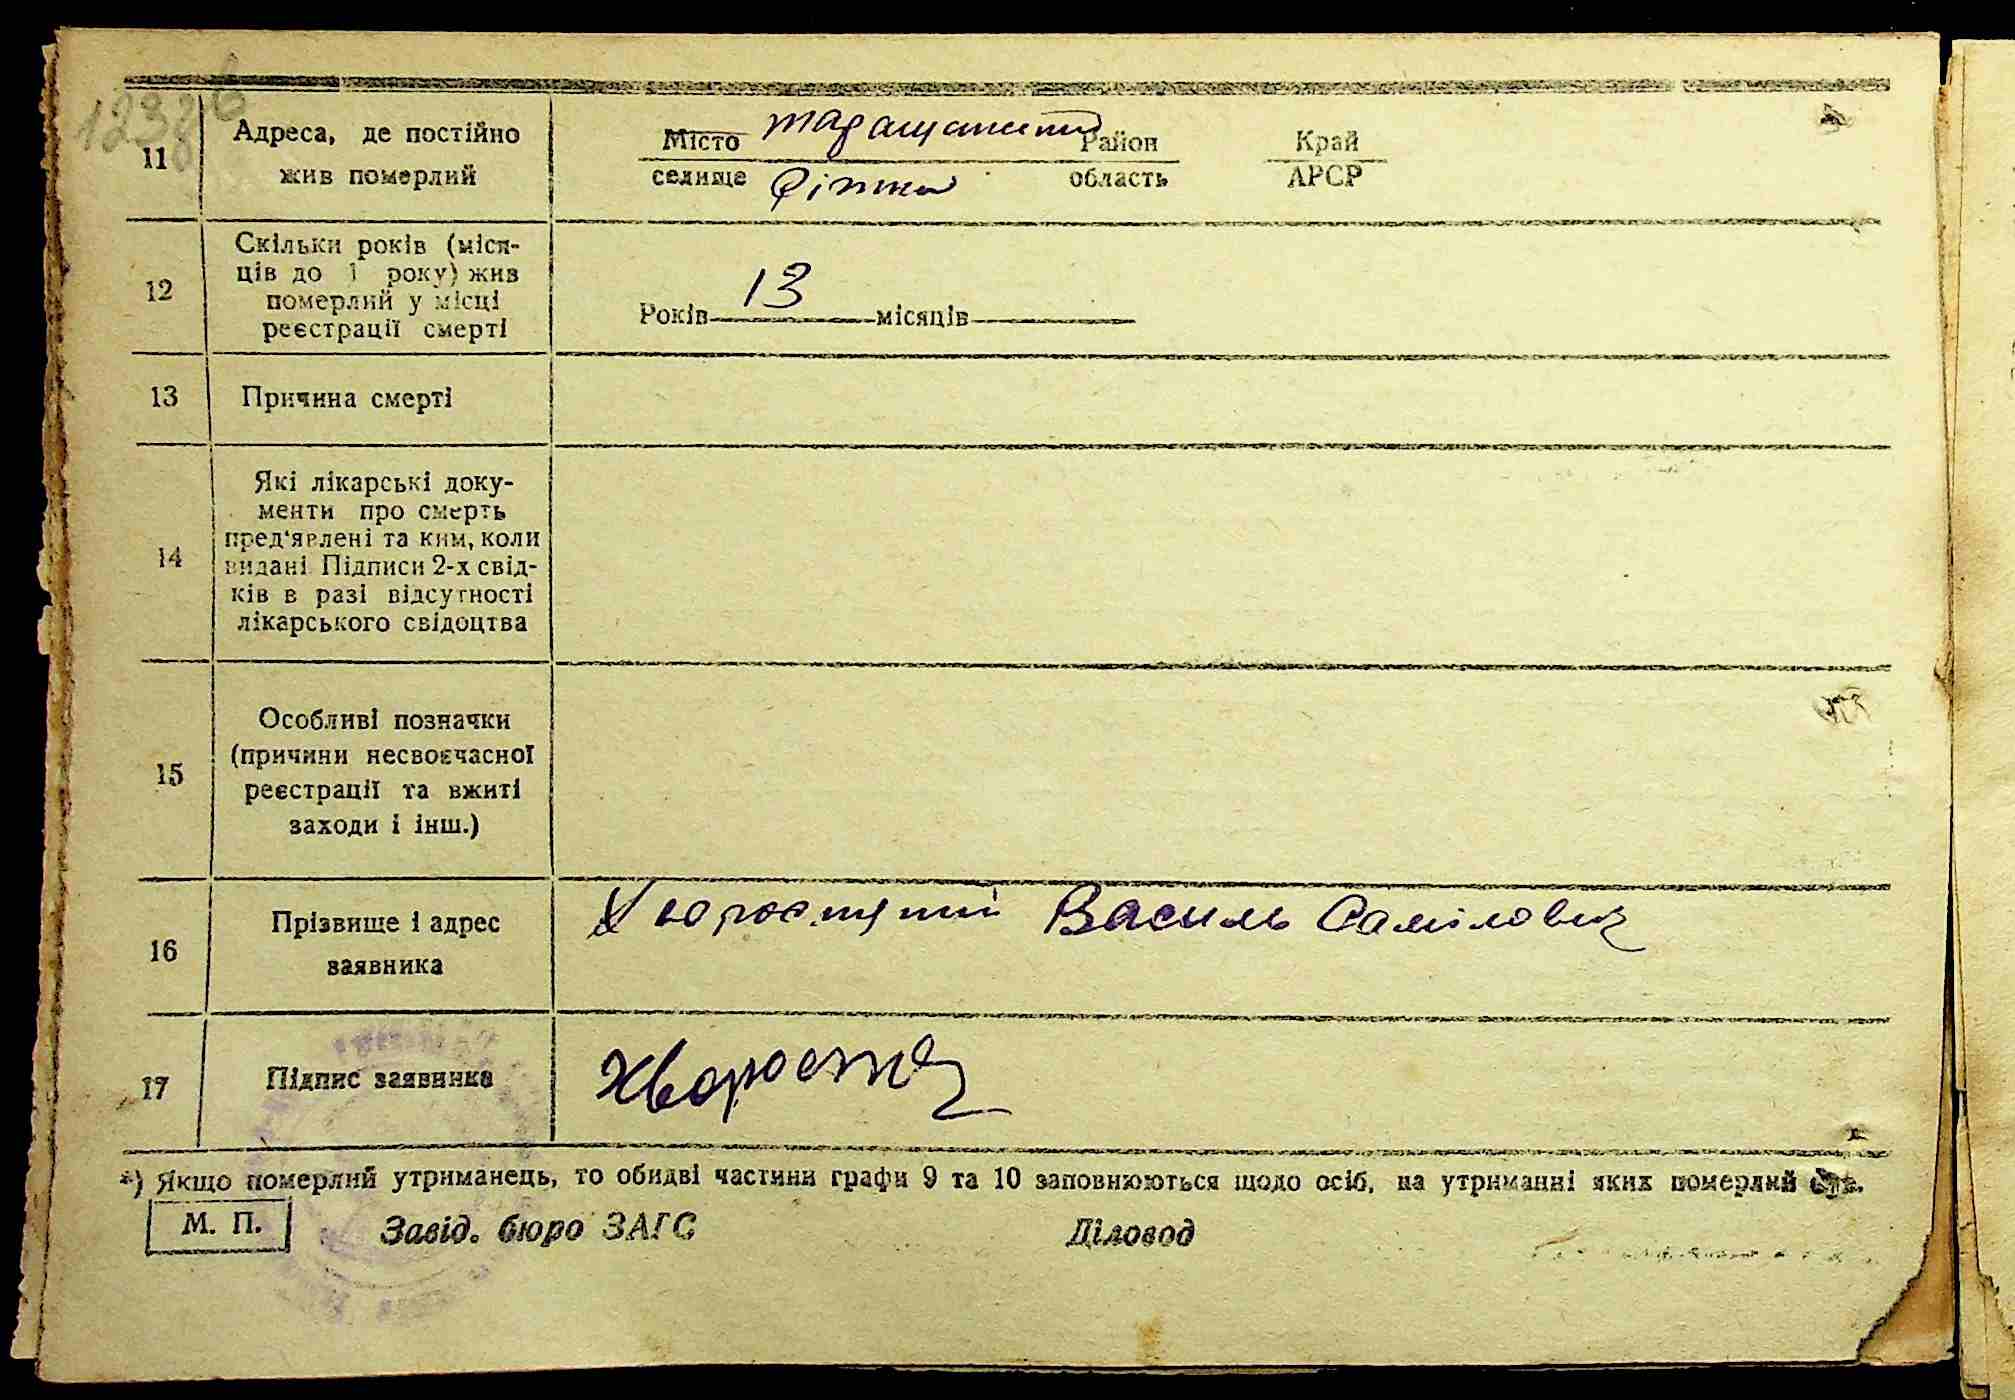 11
Адреса, де постійно
жив померлий
Місто Таращанський Район Край
селище Ріжки область АРСР
12
Скільки років (міся-
ців до 1 року) жив
померлий у місці
реєстрації смерті
Років 13 місяців
13
Причина смерті
14
Які лікарські доку-
менти про смерть
пред'явлені та ким, коли
видані. Підписи 2-х свід-
ків в разі відсутності
лікарського свідоцтва
15
Особливі позначки
(причини несвоєчасної
реєстрації та вжиті
заходи і інш.)
16
Прізвище і адрес
заявника
Василь Самілович
17
Підпис заявника
*) Якщо померлий утриманець, то обидві частини графи 9 та 10 заповнюються щодо осіб, на утриманні яких померлий був.
М. П. Завід. бюро ЗАГС Діловод